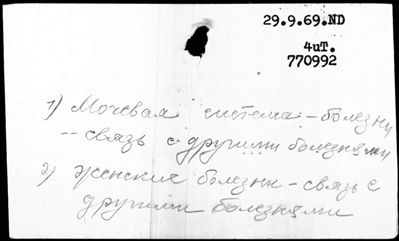 29.9.69.ND
4иТ.
770992
1) Мочевая система - болезни
-- связь с другими болезнями
2) Женские болезни - связь с
другими болезнями